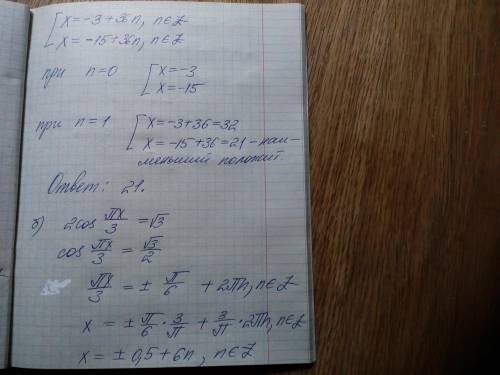 [ x = -3 + 36n, n ∈ Z
[ x = -15 + 36n, n ∈ Z
при n = 0 [ x = -3
[ x = -15
при n = 1 [ x = -3 + 36 = 32
[ x = -15 + 36 = 21 - наи-
меньший положит
Ответ: 21.
б) 2cos πx/3 = √3
cos πx/3 = √3/2
πx/3 = ± π/6 + 2πn, n ∈ Z
x = ± π/6 · 3/π + 3/π · 2πn, n ∈ Z
x = ± 0,5 + 6n, n ∈ Z